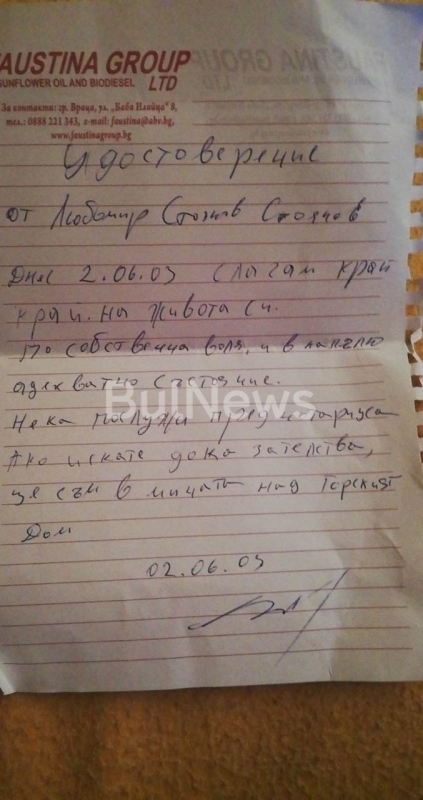 FAUSTINA GROUP
SUNFLOWER OIL AND BIODIESEL LTD
За контакти: гр. Враца, ул. „Баба Илийца" 8,
тел.: 0888 221 343, e-mail: faustina@abv.bg,
www.faustinagroup.bg
Удостоверение
от Любомир Стоянов
Днес 2.06.03 слагам край
край. на живота си.
По собствена воля, и в напълно
адекватно състояние.
Нека послужи пред нотариуса
Ако искате дока зателства,
ще съм в мината над Горският
Дом
02.06.03
BulNews